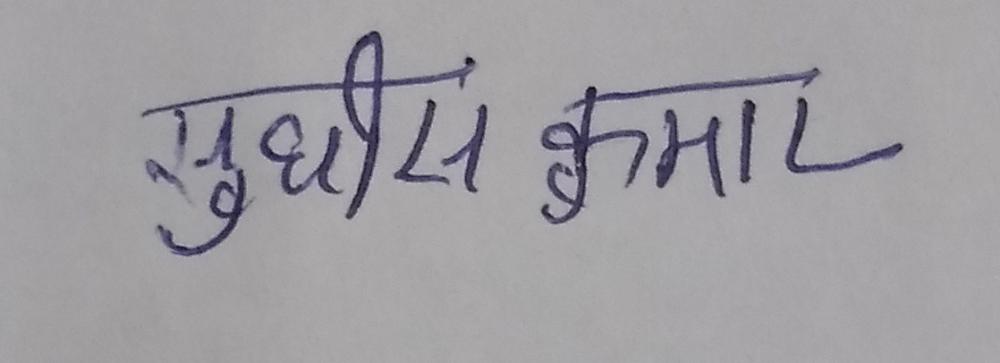 सुधीस कुमार